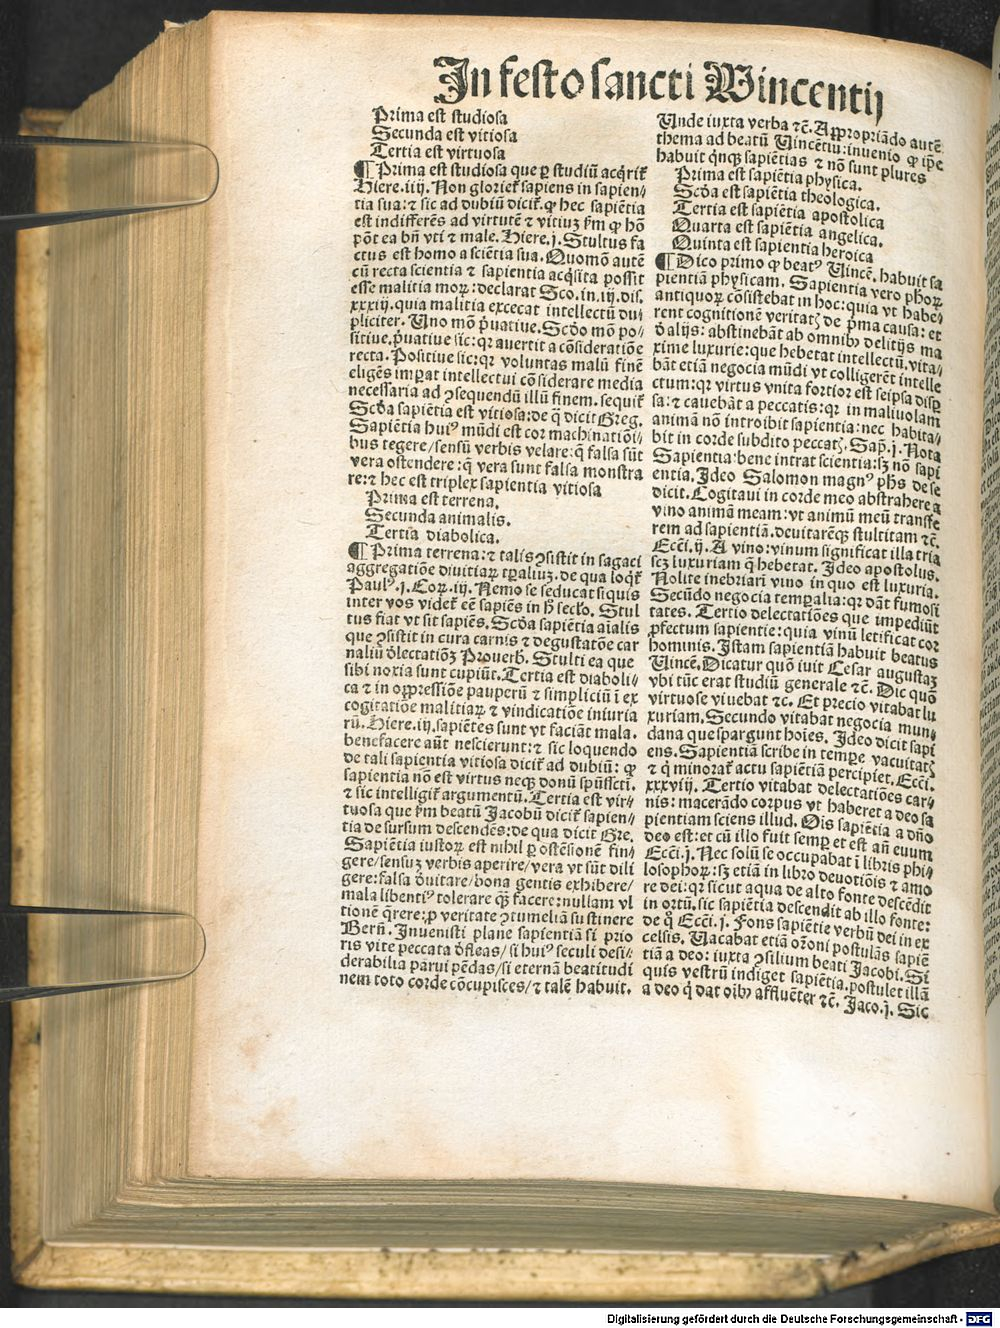 In festo sancti Vincentij
Prima est studiosa
Secunda est vitiosa
Tertia est virtuosa
¶ Prima est studiosa que ꝑ studiū acq̇riť
Hiere.iiij. Non glorieť sapiens in sapien⸗
tia sua: ⁊ sic ad dubiū diciť. ꝙ hec sapiētia
est indifferēs ad virtutē ⁊ vitiuꝫ ẜm ꝙ hō
pōt ea bñ vti ⁊ male. Hiere.j. Stultus fa
ctus est homo a sciētia sua. Quomō autē
cū recta scientia ⁊ sapientia acq̇sita possit
esse malitia moꝝ: declarat Sco. in .iij. dis.
xxxiij. quia malitia excecat intellectū du⸗
pliciter. Uno mō p̄uatiue. Scďo mō po⸗
sitiue. p̄uatiue sic: qꝛ auertit a cōsideratiōe
recta. Positiue sic: qꝛ voluntas malū finē
eligēs imꝑat intellectui cōsiderare media
necessaria ad ꝯsequendū illū finem. sequiť
Scďa sapiētia est vitiosa: de q̄ dicit Greg.
Sapiētia huiꝰ mūdi est cor machinatiōi⸗
bus tegere/ sensū verbis velare: q̄ falsa sūt
vera ostendere: q̄ vera sunt falsa monstra
re: ⁊ hec est triplex sapientia vitiosa
Prima est terrena.
Secunda animalis.
Tertia diabolica.
¶ Prima terrena: ⁊ talis ꝯsistit in sagaci
aggregatiōe diuitiaꝝ tꝑaliuꝫ. de qua loq̇ť
Paulꝰ .j. Coꝝ. iij. Nemo se seducat si quis
inter vos videť eē sapiēs in h̄ seclo. Stul
tus fiat vt sit sapiēs. Scďa sapiētia aīalis
que ꝯsistit in cura carnis ⁊ degustatōe car
naliū ďlectatiōꝫ Prouerb. Stulti ea que
sibi noxia sunt cupiūt. Tertia est diaboli⸗
ca ⁊ in opp̄ressiōe pauperū ⁊ simpliciū ī ex
cogitatiōe malitiaꝝ ⁊ vindicatiōe iniuria
rū. Hiere.iij. sapiētes sunt vt faciāt mala.
benefacere aūt nescierunt: ⁊ sic loquendo
de tali sapientia vitiosa diciť ad dubiū: ꝙ
sapientia nō est virtus neqꝫ donū spūssct̄i.
⁊ sic intelligiť argumentū. Tertia est vir⸗
tuosa que ẜm beatū Jacobū diciť sapien⸗
tia de sursum descendēs: de qua dicit Gre.
Sapiētia iustoꝝ est nihil ꝑ ostēsionē fin⸗
gere/ sensuꝫ verbis aperire/ vera vt sūt dili
gere: falsa ďuitare/ bona gentis exhibere/
mala libentiꝰ tolerare q̄ꝫ facere: nullam vl
tionē q̄rere: ꝓ veritate ꝯtumeliā sustinere
Berñ. Inuenisti plane sapientiā si prio
ris vite peccata ďfleas/ si huiꝰ seculi desi⸗
derabilia parui pēdas/ si eternā beatitudi
nem toto corde cōcupisces/ ⁊ talē habuit.
Unde iuxta verba ⁊c̄. Appropriādo autē
thema ad beatū Uincētiū: inuenio ꝙ ip̄e
habuit q̇nqꝫ sapiētias ⁊ nō sunt plures
Prima est sapiētia physica.
Scďa est sapiētia theologica.
Tertia est sapiētia apostolica
Quarta est sapiētia angelica.
Quinta est sapientia heroica
¶ Dico primo ꝙ beatꝰ Uincē. habuit sa
pientiā physicam. Sapientia vero ph̄oꝝ
antiquoꝝ cōsistebat in hoc: quia vt habe⸗
rent cognitionē veritatꝭ de p̄ma causa: et
ď alijs: abstinebāt ab omnibꝰ delitijs ma
xime luxurie: que hebetat intellectū. vita⸗
bāt etiā negocia mūdi vt colligerēt intelle
ctum: qꝛ virtus vnita fortior est seipsa disꝑ
sa: ⁊ cauebāt a peccatis: qꝛ in maliuolam
animā nō introibit sapientia: nec habita⸗
bit in corde subdito peccatꝭ. Sap̄.j. Nota
Sapientia: bene intrat scientia: sꝫ nō sapi
entia. Ideo Salomon magnꝰ ph̄s de se
dicit. Cogitaui in corde meo abstrahere a
vino animā meam: vt animū meū transfe
rem ad sapientiā. deuitarēqꝫ stultitam ⁊c̄.
Ecc̄i.ij. A vino: vinum significat illa tria
scꝫ luxuriam q̄ hebetat. Ideo apostolus.
Nolite inebriari vino in quo est luxuria.
Secūdo negocia temꝑalia: qꝛ dāt fumosi
tates. Tertio delectatiōes que impediūt
ꝓfectum sapientie: quia vinū letificat cor
hominis. Istam sapientiā habuit beatus
Uincē. Dicatur quō iuit Cesar augustaꝫ
vbi tūc erat studiū generale ⁊c̄. Dic quō
virtuose viuebat ⁊c. Et precio vitabat lu
xuriam. Secundo vitabat negocia mun⸗
dana que spargunt hoīes. Ideo dicit sapi
ens. Sapientiā scribe in tempe vacuitatꝭ
⁊ q̇ minorať actu sapiētiā percipiet. Ecc̄i.
xxxviij. Tertio vitabat delectatiōes car⸗
nis: macerādo corpus vt haberet a deo sa
pientiam sciens illud. Oīs sapiētia a dn̄o
deo est: et cū illo fuit semꝑ et est añ euum
Ecc̄i.j. Nec solū se occupabat ī libris phi⸗
losophoꝝ: sꝫ etiā in libro deuotiōis ⁊ amo
re dei: qꝛ sicut aqua de alto fonte descēdit
in ortū. sic sapiētia descendit ab illo fonte:
de q̇ Ecc̄i.j. Fons sapiētie verbū dei in ex
celsis. Uacabat etiā or̄oni postulās sapiē
tiā a deo: iuxta ꝯsilium beati Jacobi. Si
quis vestrū indiget sapiētia. postulet illā
a deo q̇ dat oībꝰ affluēter ⁊c̄. Jaco.j. Sic
Digitalisierung gefördert durch die Deutsche Forschungsgemeinschaft - DFG